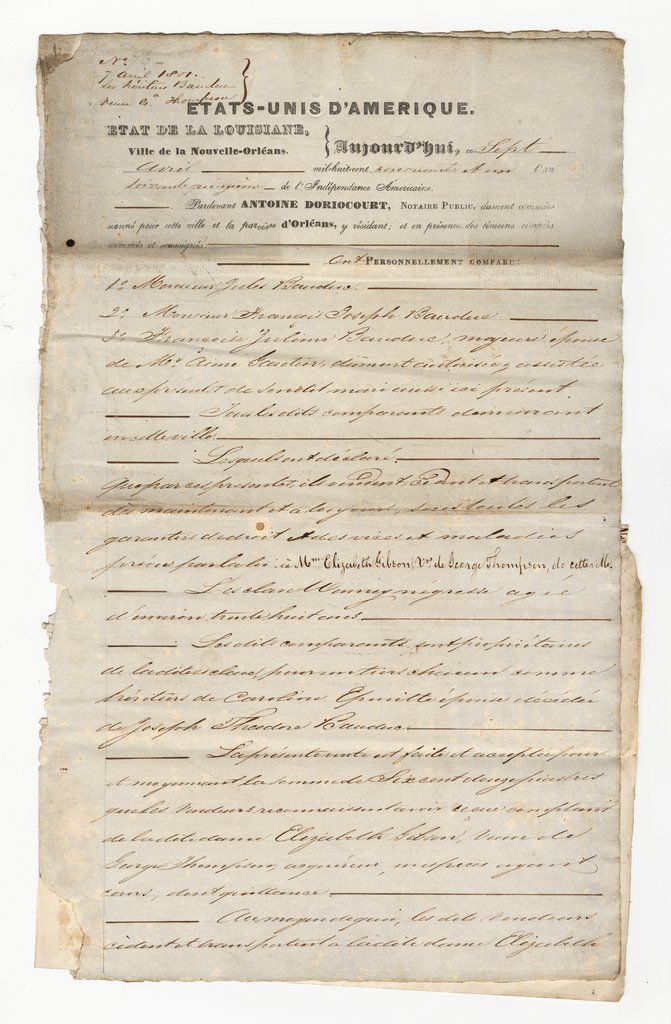 No
7 avril 1851.
Les héritiers Bauduc
Veuve G. Thompson
ETATS-UNIS D'AMERIQUE.
ETAT DE LA LOUISIANE,
Ville de la Nouvelle-Orléans.
Aujourd'hui, ce Sept
Avril milhuitcent cinquante et un l'an
soixantequinzième de l'Indépendance Americaine.
Pardevant ANTOINE DORIOCOURT, NOTAIRE PUBLIC, dument commis-
sionné pour cette ville et la paroisse d'Orléans, y résidant; et en présence des témoins ci-après
nommés et soussignés:
Ont PERSONNELLEMENT COMPARU:
1o. Monsieur Jules Bauduc.
2o. Monsieur François Joseph Bauduc.
3o. Françoise Julima Bauduc, majeure épouse
de Mr. Aimé Gautier, dument autorisée & assistée
aux présentes de son dit mari aussi ici présent
Tous les dits comparants demeurant
en cette ville.
Lesquels ont déclaré
que par ces presentes, ils vendent, cèdent et transportent
dès maintenant et à toujours, sous toutes les
garanties de droit et de vices et maladies
prévus par la loi: à Mme. Elizabeth Gibson, Vve. de George Thompson, de cette ville.
L'esclave Winney négresse agée
d'environ trente huit ans.
Les dits comparants, sont propriétaires
de la dite esclave, pour un tiers chacun comme
héritiers de Caroline épouse décédée
de Joseph Théodore Bauduc.
La présente vente est faite et acceptée pour
et moyennant la somme de Six cent piastres
que les vendeurs reconnaissent avoir reçue comptant
de la dite dame Elizabeth Gibson, Veuve de
George Thompson, acquéreur, en espèces ayant
cours, dont quittance.
Au moyen de quoi, les dits vendeurs
cèdent et transportent à la dite dame Elizabeth